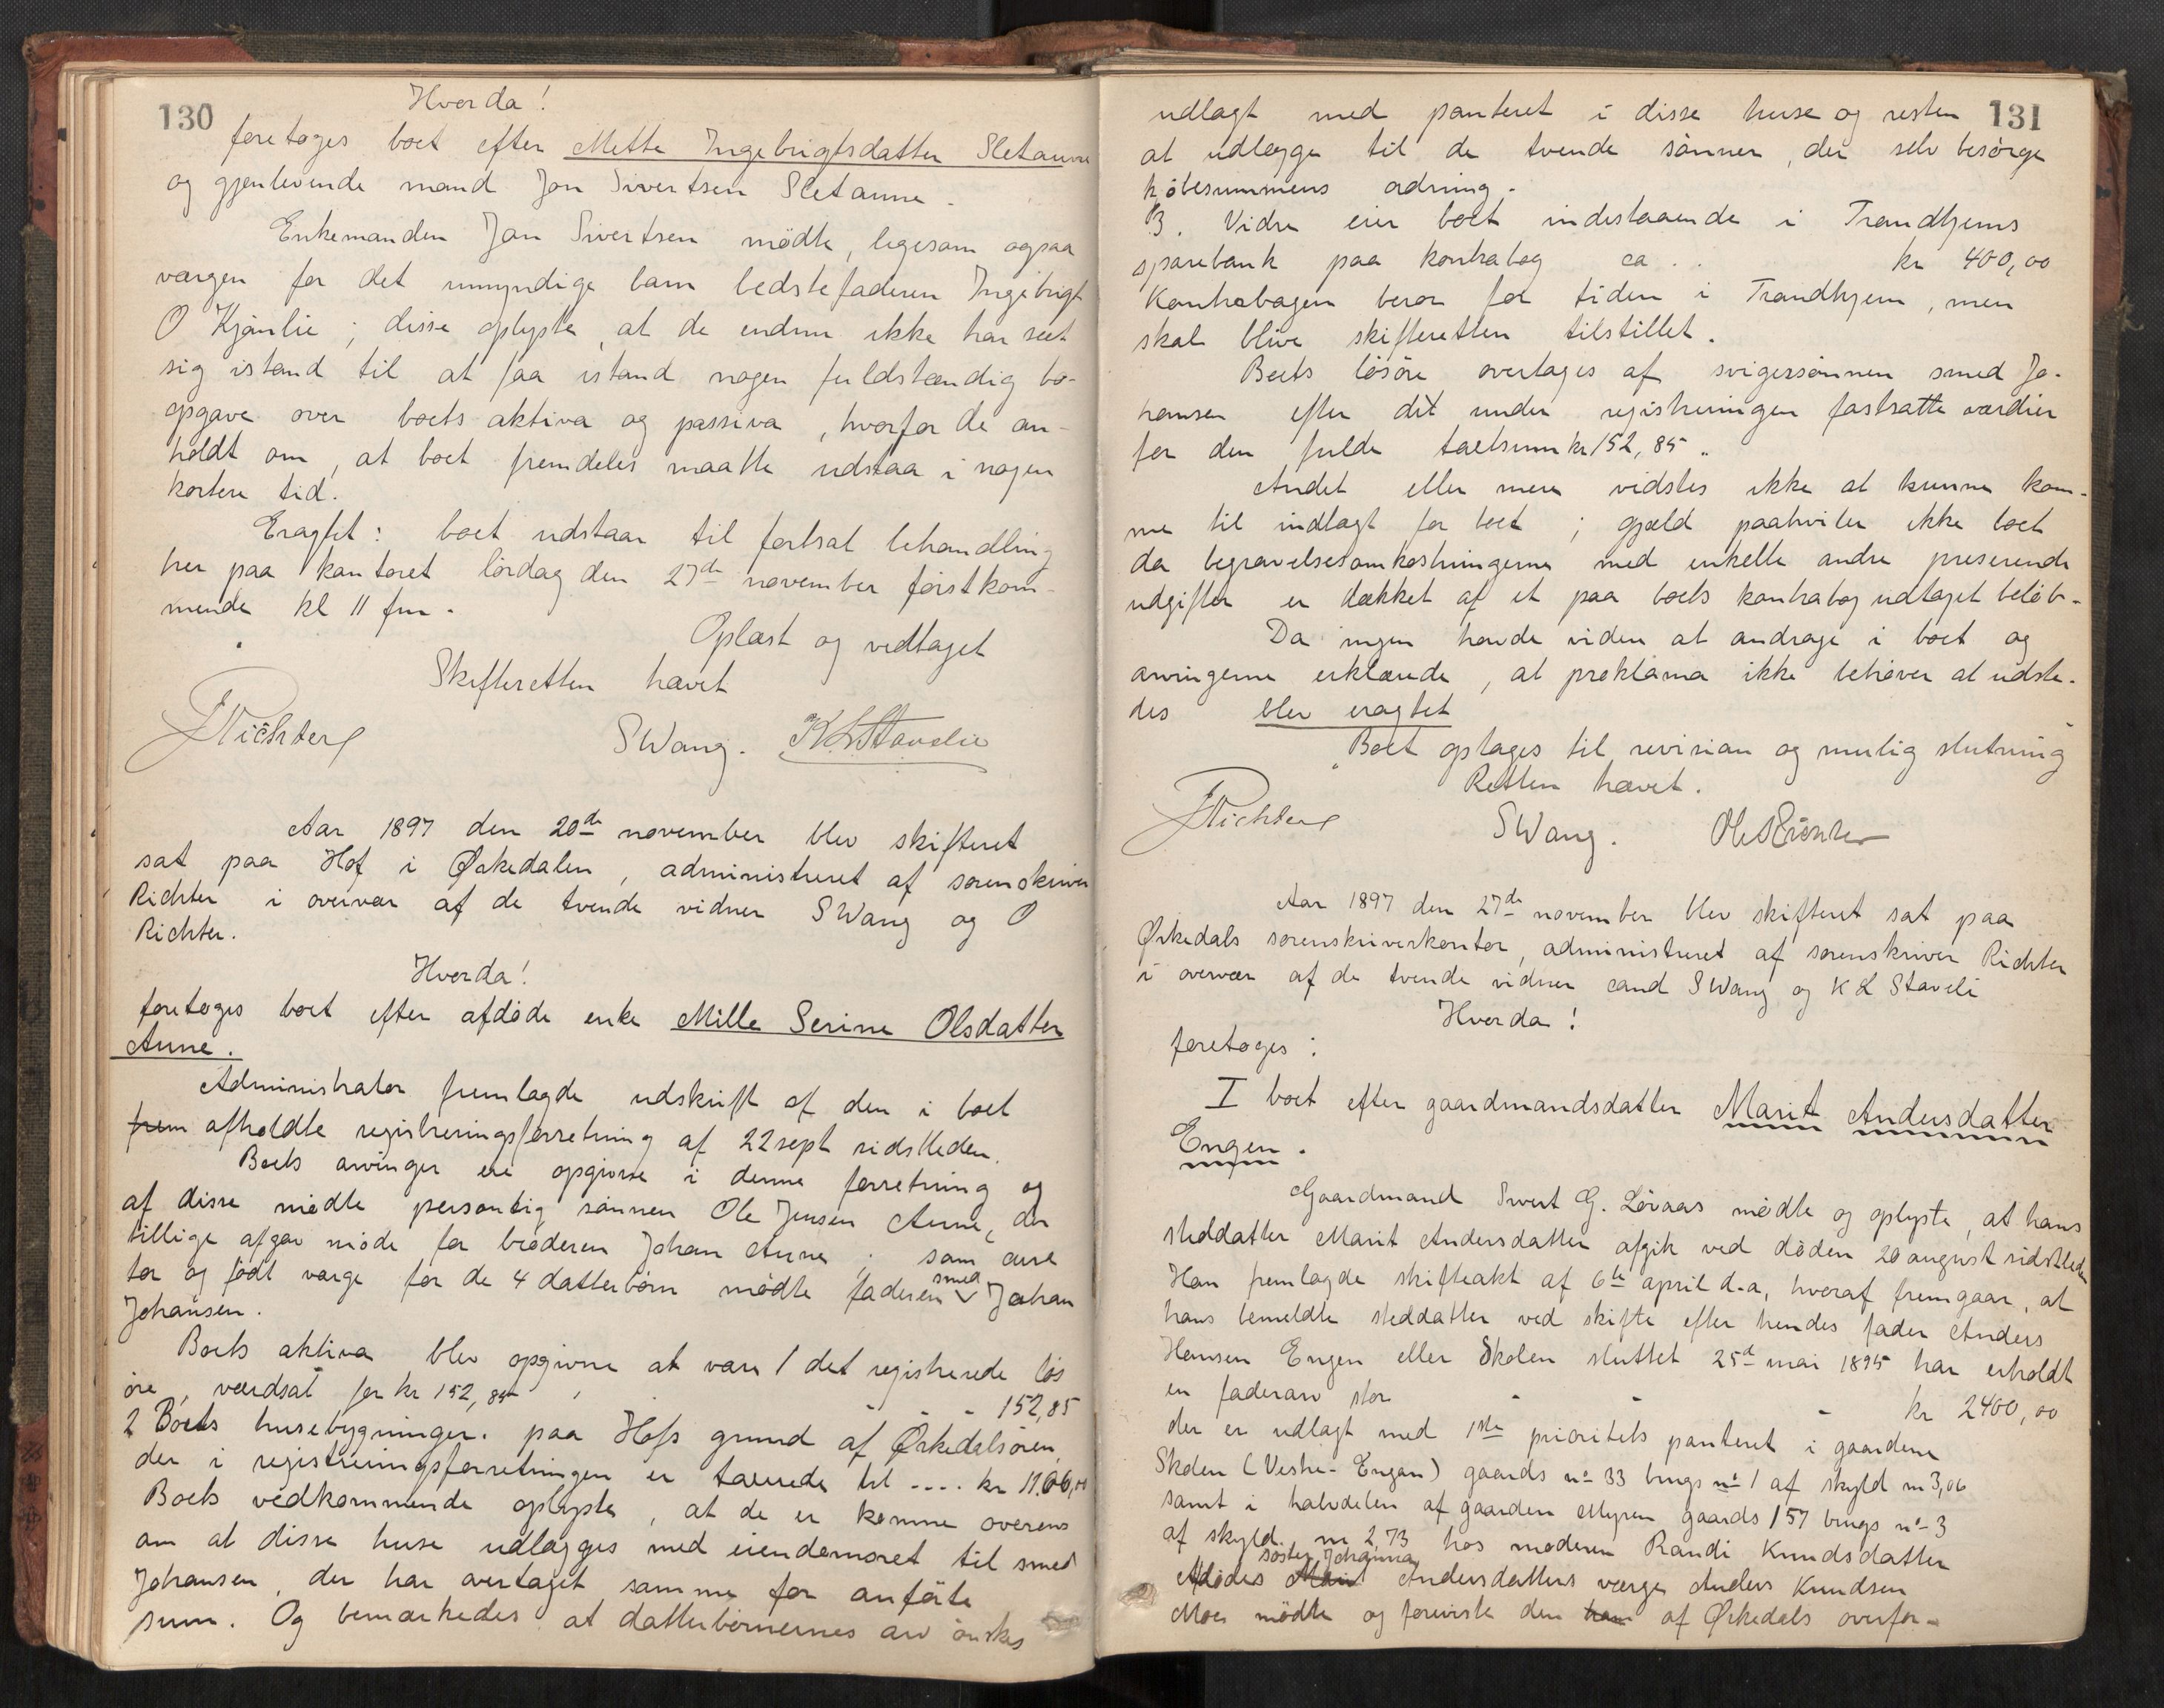 130
Hvorda!
foretoges boet efter Mette Ingebrigtsdatter Sletaune
og gjenlevende mand Jon Sivertsen Sletaune.
Enkemanden Jon Sivertsen mödte, ligesom ogsaa
vergen for det umyndige barn bedstefaderen Ingebrigt
O Kjönlie; disse oplyste, at de endnu ikke har seet
sig istand til at faa istand nogen fuldstændig bo-
opgave over boets aktiva og passiva, hvorfor de an-
holdt om, at boet fremdeles maatte udstaa i nogen
kortere tid.
Eragtet: boet udstaar til fortsat behandling
her paa kontoret lördag den 27de november förstkom-
mende kl 11 fm.
Oplæst og vedtaget
Skifteretten hævet
JRichter SWang. KLStavelie
Aar 1897 den 20de november blev skifteret
sat paa Hof i Ørkedalen, administreret af sorenskriver
Richter i overvær af de tvende vidner SWang og O
Richter.
Hvorda!
foretoges boet efter afdöde enke Mille Serine Olsdatter
Aune.
Administrator fremlagde udskrift af den i boet
frem afholdte registreringsforretning af 22 sept sidstleden.
Boets arvinger ere opgivne i denne forretning og
af disse mödte personlig sönnen Ole Jensen Aune, der
tillige afgav möde for broderen Johan Aune; som cura
tor og födt værge for de 4 datterbörn mödte faderen smed Johan
Johansen.
Boets aktiva blev opgivne at være 1 det registrerede lös
öre, værdsat for kr 152,85 - - - 152,85
2 Boets husebygninger paa Hofs grund af Ørkedalsören,
der i registreringsforretningen er taxerede til .... kr 1100,00
Boets vedkommende oplyste, at de er komne overens
om at disse huse udlægges med eiendomsret til smed
Johansen, der har overtaget samme for anförte
sum. Og bemærkedes at datterbörnenes arv önskes
131
udlagt med panteret i disse huse og resten
at udlægge til de tvende sönner, der selv besörge
köbesummens ordning.
3. Vidre eier boet indestaaende i Trondhjems
sparebank paa kontrabog ca .. kr 400,00
Kontrabogen beror for tiden i Trondhjem, men
skal blive skifteretten tilstillet.
Boets lösöre overtages af svigersönnen smed Jo-
hansen efter det under registreringen fastsatte værdier
for den fulde taxtsum kr 152,85.
Andet eller mere vidstes ikke at kunne kom-
me til indtægt for boet; gjæld paahviler ikke boet
da begravelsesomkostningerne med enkelte andre preserende
udgifter er dækket af et paa boets kontrabog udtaget belöb.
Da ingen havde videre at andrage i boet og
arvingerne erklærede, at proklama ikke behöver at udste-
des blev eragtet
"Boet optages til revision og mulig slutning"
Retten hævet.
JRichter SWang. Ole Richter
Aar 1897 den 27de november blev skifteret sat paa
Ørkedals sorenskriverkontor, administreret af sorenskriver Richter
i overvær af de tvende vidner cand SWang og K L Staveli
Hvorda!
foretoges:
I boet efter gaardmandsdatter Marit Andersdatter
Engen.
Gaardmand Sivert G. Lövaas mödte og oplyste, at hans
steddatter Marit Andersdatter afgik ved döden 20 august sidstleden
Han fremlagde skifteakt af 6te april d.a, hvoraf fremgaar, at
hans bemeldte steddatter ved skifte efter hendes fader Anders
Hansen Engen eller Skolen sluttet 25de mai 1895 har erholdt
en faderarv stor - - - kr 2400,00
der er udlagt med 1ste prioritets panteret i gaardene
Skolen (Vestre-Engan) gaards no 33 brugs no 1 af skyld m 3,06
samt i halvdelen af gaarden Myren gaards 157 brugs no 3
af skyld m 2,73 hos moderen Randi Knudsdatter
Afdödes Marit söster Johanna Andersdatters værge Anders Knudsen
Moes mödte og foreviste den ham af Ørkedals overfor-